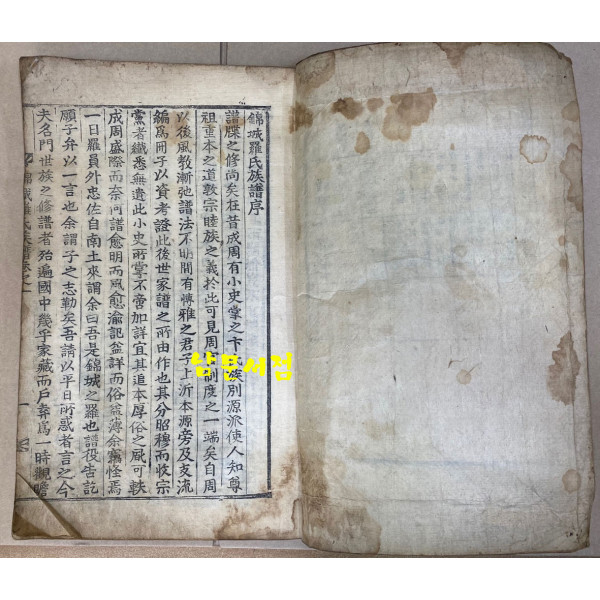 錦城羅氏族譜序
譜牒之修尚矣在昔成周有小史掌之卞氏族別源派使人知尊
祖重本之道敦宗睦族之義於此可見周家制度之一端矣自周
以後風敎漸弛譜法不明間有博雅之君子上泝本源旁及支流
編爲冊子以資考證此後世家譜之所由作也其分昭穆而收宗
黨者纖悉無遺此小史所掌不啻加詳宜其追本厚俗之風可軼
成周盛際而奈何譜愈明而風愈渝記益詳而俗益薄余竊怪焉
一日羅員外忠佐自南土來謂余曰吾是錦城之羅也譜役告訖
願子弁以一言也余謂子之志勤矣吾請以平日所感者言之今
夫名門世族之修譜者殆遍國中幾乎家藏而戶弆爲一時觀瞻
錦城羅氏族譜卷之一
남문서점